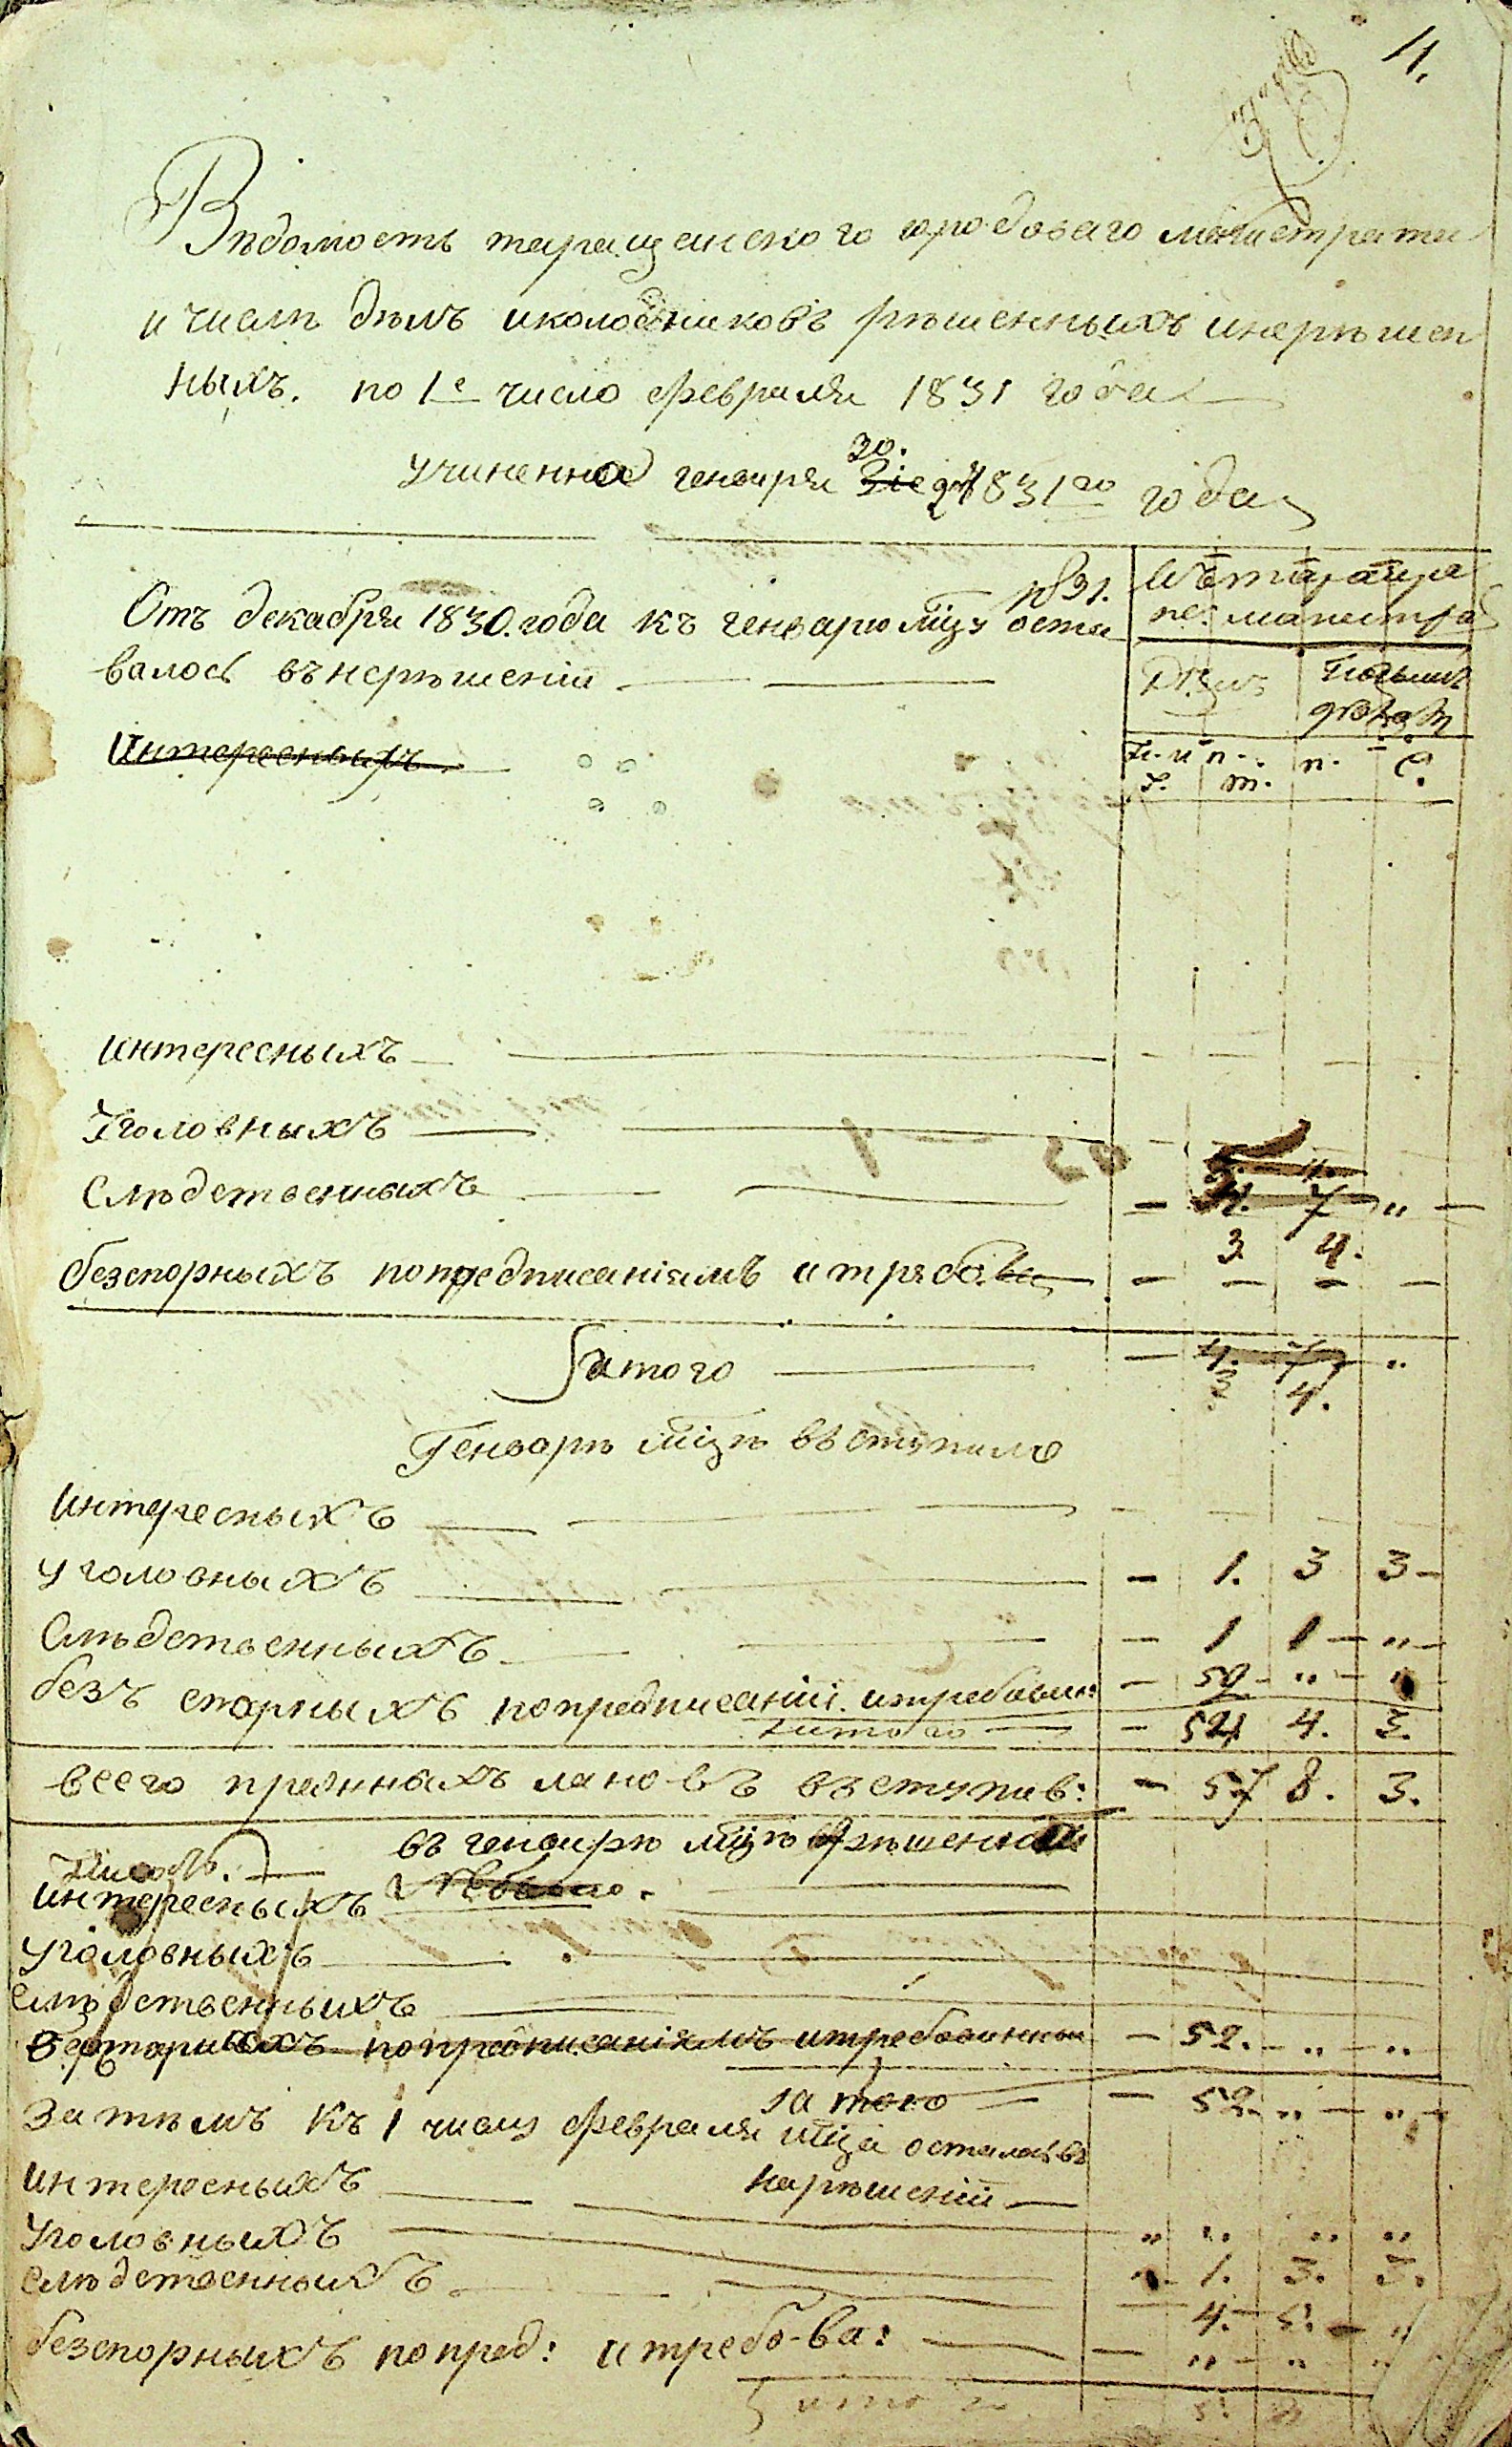 4.
Вѣдомость таращанского городоваго магистрата
и числѣ дѣлъ иколодниковъ рѣшенныхъ инерѣшен
ныхъ. по 1е число февраля 1831 года
30.
учиненна генваря 1831го года
831.
Отъ декабря 1830. года къ генварю мцу оста
валось внерѣшеніи
магистра
Дѣлъ
Интересныхъ
п. п. С.
т.
интересныхъ
Уголовныхъ
Слѣдственныхъ — 4. 7 „ —
3 4.
безспорныхъ попредписаніямъ итребова — — — —
итого — 4. 7. „
3 4.
Генварѣ мцѣ вступило
Интересныхъ
уголовныхъ — 1. 3 3 —
Слѣдственныхъ — 1 1 — „ —
безъ спорныхъ попредписаній. итребован: — 52 — „ — „
итого — 54 4. 3.
всего прежнихъ въступив: — 57 8. 3.
въ генварѣ мцѣ рѣшенно
интересныхъ Небыло.
уголовныхъ
слѣдственныхъ
безспорныхъ попредписаніямъ итребованіям — 52. — „ — „
итого — 52 — „ — „
Затѣмъ къ 1 числу февраля мца осталось въ
нерѣшеніи
интересныхъ
„ „ „ „
Уголовныхъ 1. 3. 3.
слѣдственныхъ — 4. — 5. — „
безспорныхъ попред: итребо-ва: — „ — „ „
итого